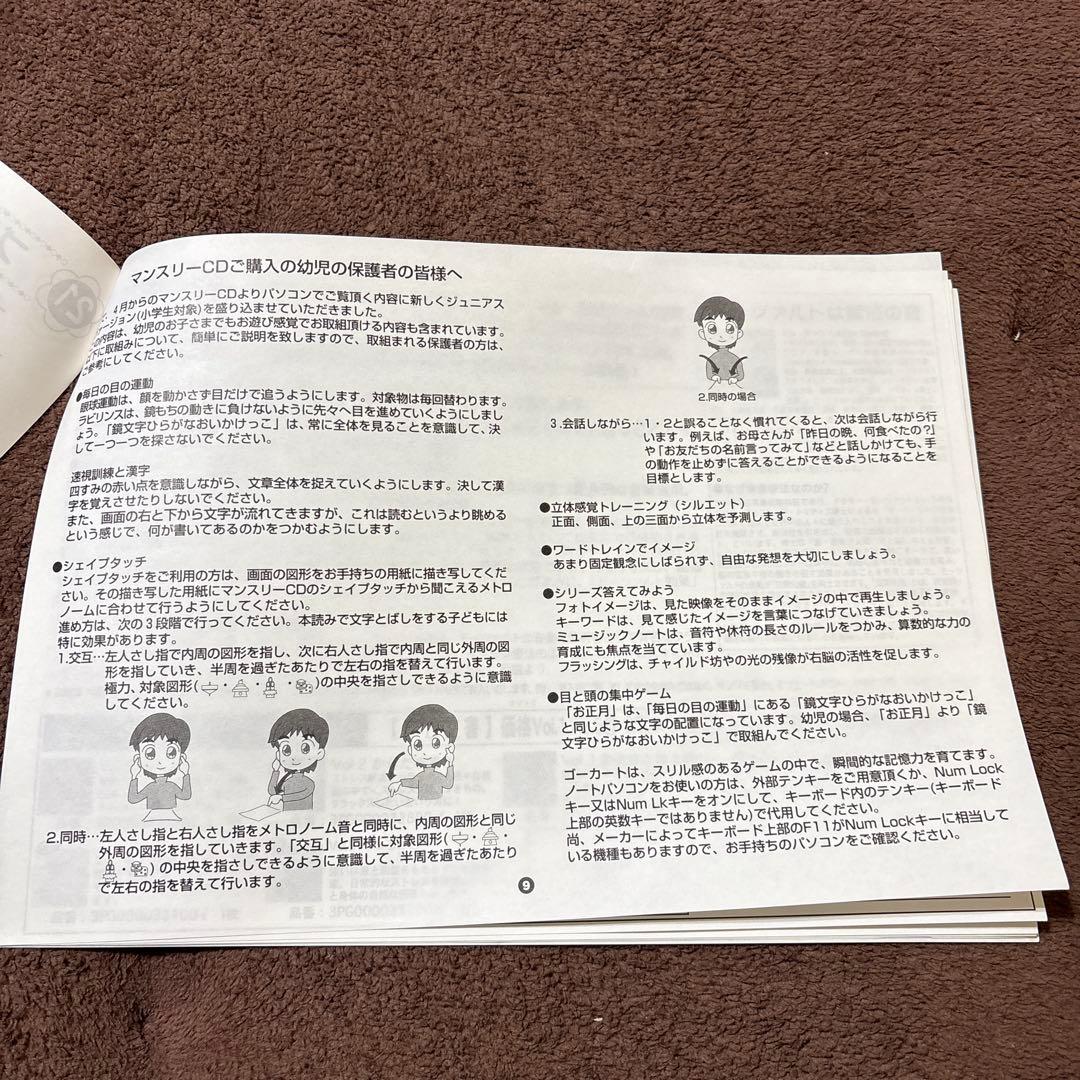 マンスリーCDご購入の幼児の保護者の皆様へ
4月からのマンスリーCDよりパソコンでご覧頂く内容に新しくジュニアス
ージョン(小学生対象)を盛り込ませていただきました。
の内容は、幼児のお子さまでもお遊び感覚でお取組頂ける内容も含まれています。
以下に取組みについて、簡単にご説明を致しますので、取組まれる保護者の方は、
ご参考にしてください。
●毎日の目の運動
眼球運動は、顔を動かさず目だけで追うようにします。対象物は毎回替わります。
ラビリンスは、鏡もちの動きに負けないように先々へ目を進めていくようにしまし
ょう。「鏡文字ひらがなおいかけっこ」は、常に全体を見ることを意識して、決
して一つ一つを探さないでください。
速視訓練と漢字
四すみの赤い点を意識しながら、文章全体を捉えていくようにします。決して漢
字を覚えさせたりしないでください。
また、画面の右と下から文字が流れてきますが、これは読むというより眺める
という感じで、何が書いてあるのかをつかむようにします。
●シェイプタッチ
シェイプタッチをご利用の方は、画面の図形をお手持ちの用紙に描き写してくだ
さい。その描き写した用紙にマンスリーCDのシェイプタッチから聞こえるメトロ
ノームに合わせて行うようにしてください。
進め方は、次の3段階で行ってください。本読みで文字とばしをする子どもには
特に効果があります。
1.交互…左人さし指で内周の図形を指し、次に右人さし指で内周と同じ外周の図
形を指していき、半周を過ぎたあたりで左右の指を替えて行います。
極力、対象図形(・・・)の中央を指さしできるように意識
してください。
2.同時…左人さし指と右人さし指をメトロノーム音と同時に、内周の図形と同じ
外周の図形を指していきます。「交互」と同様に対象図形(・・
・)の中央を指さしできるように意識して、半周を過ぎたあたり
で左右の指を替えて行います。
2.同時の場合
3.会話しながら…1・2と誤ることなく慣れてくると、次は会話しながら行
います。例えば、お母さんが「昨日の晩、何食べたの?」
や「お友だちの名前言ってみて」などと話しかけても、手
の動作を止めずに答えることができるようになることを
目標とします。
●立体感覚トレーニング（シルエット）
正面、側面、上の三面から立体を予測します。
●ワードトレインでイメージ
あまり固定観念にしばられず、自由な発想を大切にしましょう。
●シリーズ答えてみよう
フォトイメージは、見た映像をそのままイメージの中で再生しましょう。
キーワードは、見て感じたイメージを言葉につなげていきましょう。
ミュージックノートは、音符や休符の長さのルールをつかみ、算数的な力の
育成にも焦点を当てています。
フラッシングは、チャイルド坊やの光の残像が右脳の活性を促します。
●目と頭の集中ゲーム
「お正月」は、「毎日の目の運動」にある「鏡文字ひらがなおいかけっこ」
と同じような文字の配置になっています。幼児の場合、「お正月」より「鏡
文字ひらがなおいかけっこ」で取組んでください。
ゴーカートは、スリル感のあるゲームの中で、瞬間的な記憶力を育てます。
ノートパソコンをお使いの方は、外部テンキーをご用意頂くか、Num Lock
キー又はNum Lkキーをオンにして、キーボード内のテンキー(キーボード
上部の英数キーではありません)で代用してください。
尚、メーカーによってキーボード上部のF11がNum Lockキーに相当して
いる機種もありますので、お手持ちのパソコンをご確認ください。
9